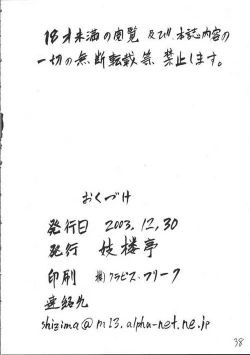 18才未満の閲覧 及び 本誌内容の
一切の無断転載等、禁止します。
おくづけ
発行日 2003.12,30
発行 妓楼亭
印刷 ㈱クラピス・フリーク
連絡先
shizima@m13.alpha-net.ne.jp
38